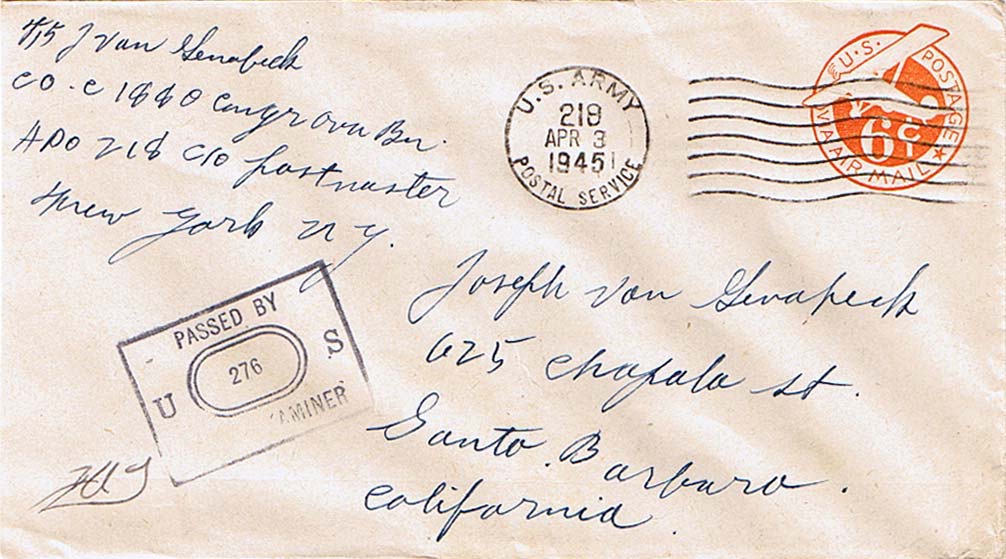 T/5 J Van Genabeek
CO. C 1880 Engr Avn Bn.
APO 218 c/o Postmaster
New York N Y.
U.S. ARMY
218
APR 3
1945
POSTAL SERVICE
U.S. POSTAGE
6c
VIA AIR MAIL
PASSED BY
U 276 S
AMINER
Joseph Van Genabeek
625 Chapala St.
Santa Barbara.
California.